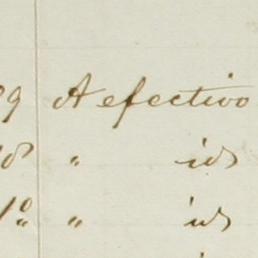 9 A efectivo
" id
1º " id